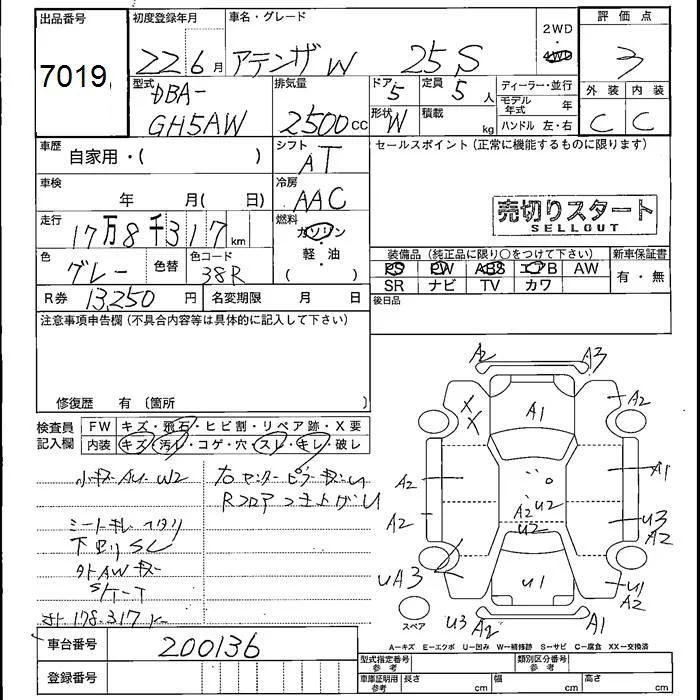 出品番号
7019
初度登録年月
22 6月
車名・グレード
アテンザW 25S
2WD
・
4WD
評価点
3
外装 内装
C C
型式
DBA-
GH5AW
排気量
2500 CC
ドア
5
定員
5 人
形状
W
積載
kg
ディーラー・並行
モデル年式 年
ハンドル 左・右
車歴
自家用・( )
シフト
AT
セールスポイント(正常に機能するものに限ります)
車検
年 月( 日)
冷房
AAC
売切りスタート
SELLOUT
走行
17万8千317 km
燃料
ガソリン
・
軽・油
( )
装備品(純正品に限り○をつけて下さい)
新車保証書
PS PW ABS エアB AW
有・無
SR ナビ TV カワ
色
グレー
色替
色コード
38R
R券 13,250 円
名変期限 月 日
後日品
注意事項申告欄(不具合内容等は具体的に記入して下さい)
修復歴 有〔箇所 〕
検査員
記入欄
FW キズ・飛石・ヒビ割・リペア跡・X要
内装 キズ・汚レ・コゲ・穴・スレ・キレ・破レ
小キズ AU W2
下回りSC
178,317K
車台番号 200136
登録番号
A2 A3
X
X
A1
A2
A2
A2
A1
A2
U2
U2
U3
A2
UA3
U1
U1
A2
スペア
U3 A2
A1
A-キズ E-エクボ U-凹み W-補修跡 S-サビ C-腐食 XX-交換済
型式指定番号
参考
類別区分番号
参考
車庫証明用
参考
長さ cm
幅 cm
高さ cm